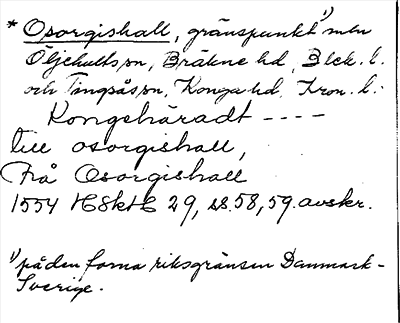 * Osorgishall, gränspunkt¹⁾ mln
Öljehults sn, Bräkne hd, Blek. l.
och Tingsås sn, Konga hd, Kron. l.:
Kongshäradt ----
till osorgishall,
Frå Osorgishall
1554 HSkH 29, ss. 58, 59. avskr.
¹⁾ på den forna riksgränsen Danmark-
Sverige.